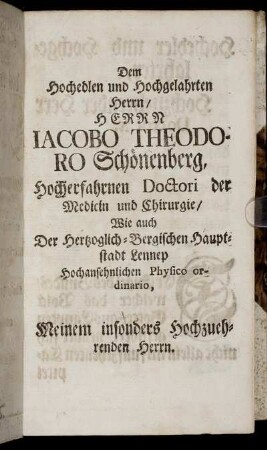 Dem
Hochedlen und Hochgelahrten
Herrn/
HERRN
IACOBO THEODO-
RO Schönenberg,
Hocherfahrnen Doctori der
Medicin und Chirurgie/
Wie auch
Der Hertzoglich-Bergischen Haupt-
stadt Lennep
Hochansehnlichen Physico or-
dinario,
Meinem insonders Hochzueh-
renden Herrn.